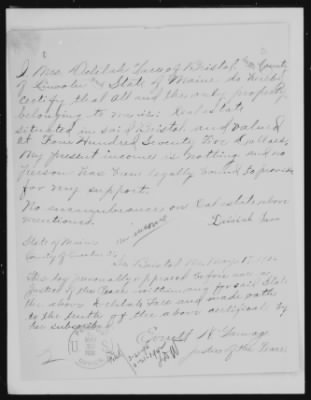 I Mrs. Delilah Tace of Bristol in County
of Lincoln and State of Maine do hereby
certify that all and the only property
belonging to me is: Real estate
situated in said Bristol and valued
at Four Hundred Seventy Five Dollars.
My present income is nothing and no
person has been legally bound to provide
for my support.
No incumbrances on Real estate above
mentioned.
no income
Delilah Tace
State of Maine
County of Lincoln ss
Bristol Me May 17,
This day personally appeared before me a
Justice of the Peace within and for said State
the above Delilah Tace and made oath
to the truth of the above certificate by
her subscribed
Everett
Justice of the Peace
U S